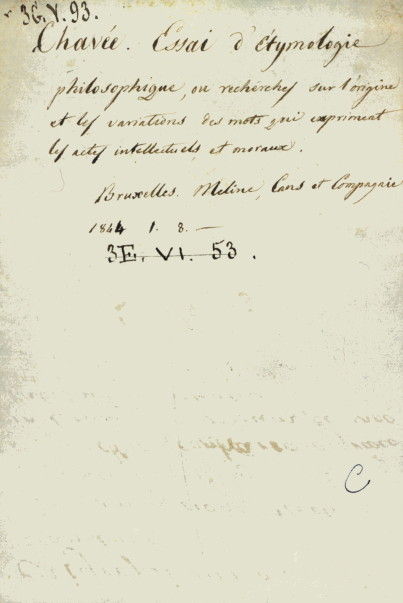 36.V.93.
Chavée. Essai d'étymologie
philosophique, ou recherches sur l'origine
et les variations des mots qui expriment
les actes intellectuels et moraux.
Bruxelles. Meline, Cans et Compagnie
1844 1. 8. —
3E. VI. 53.
C